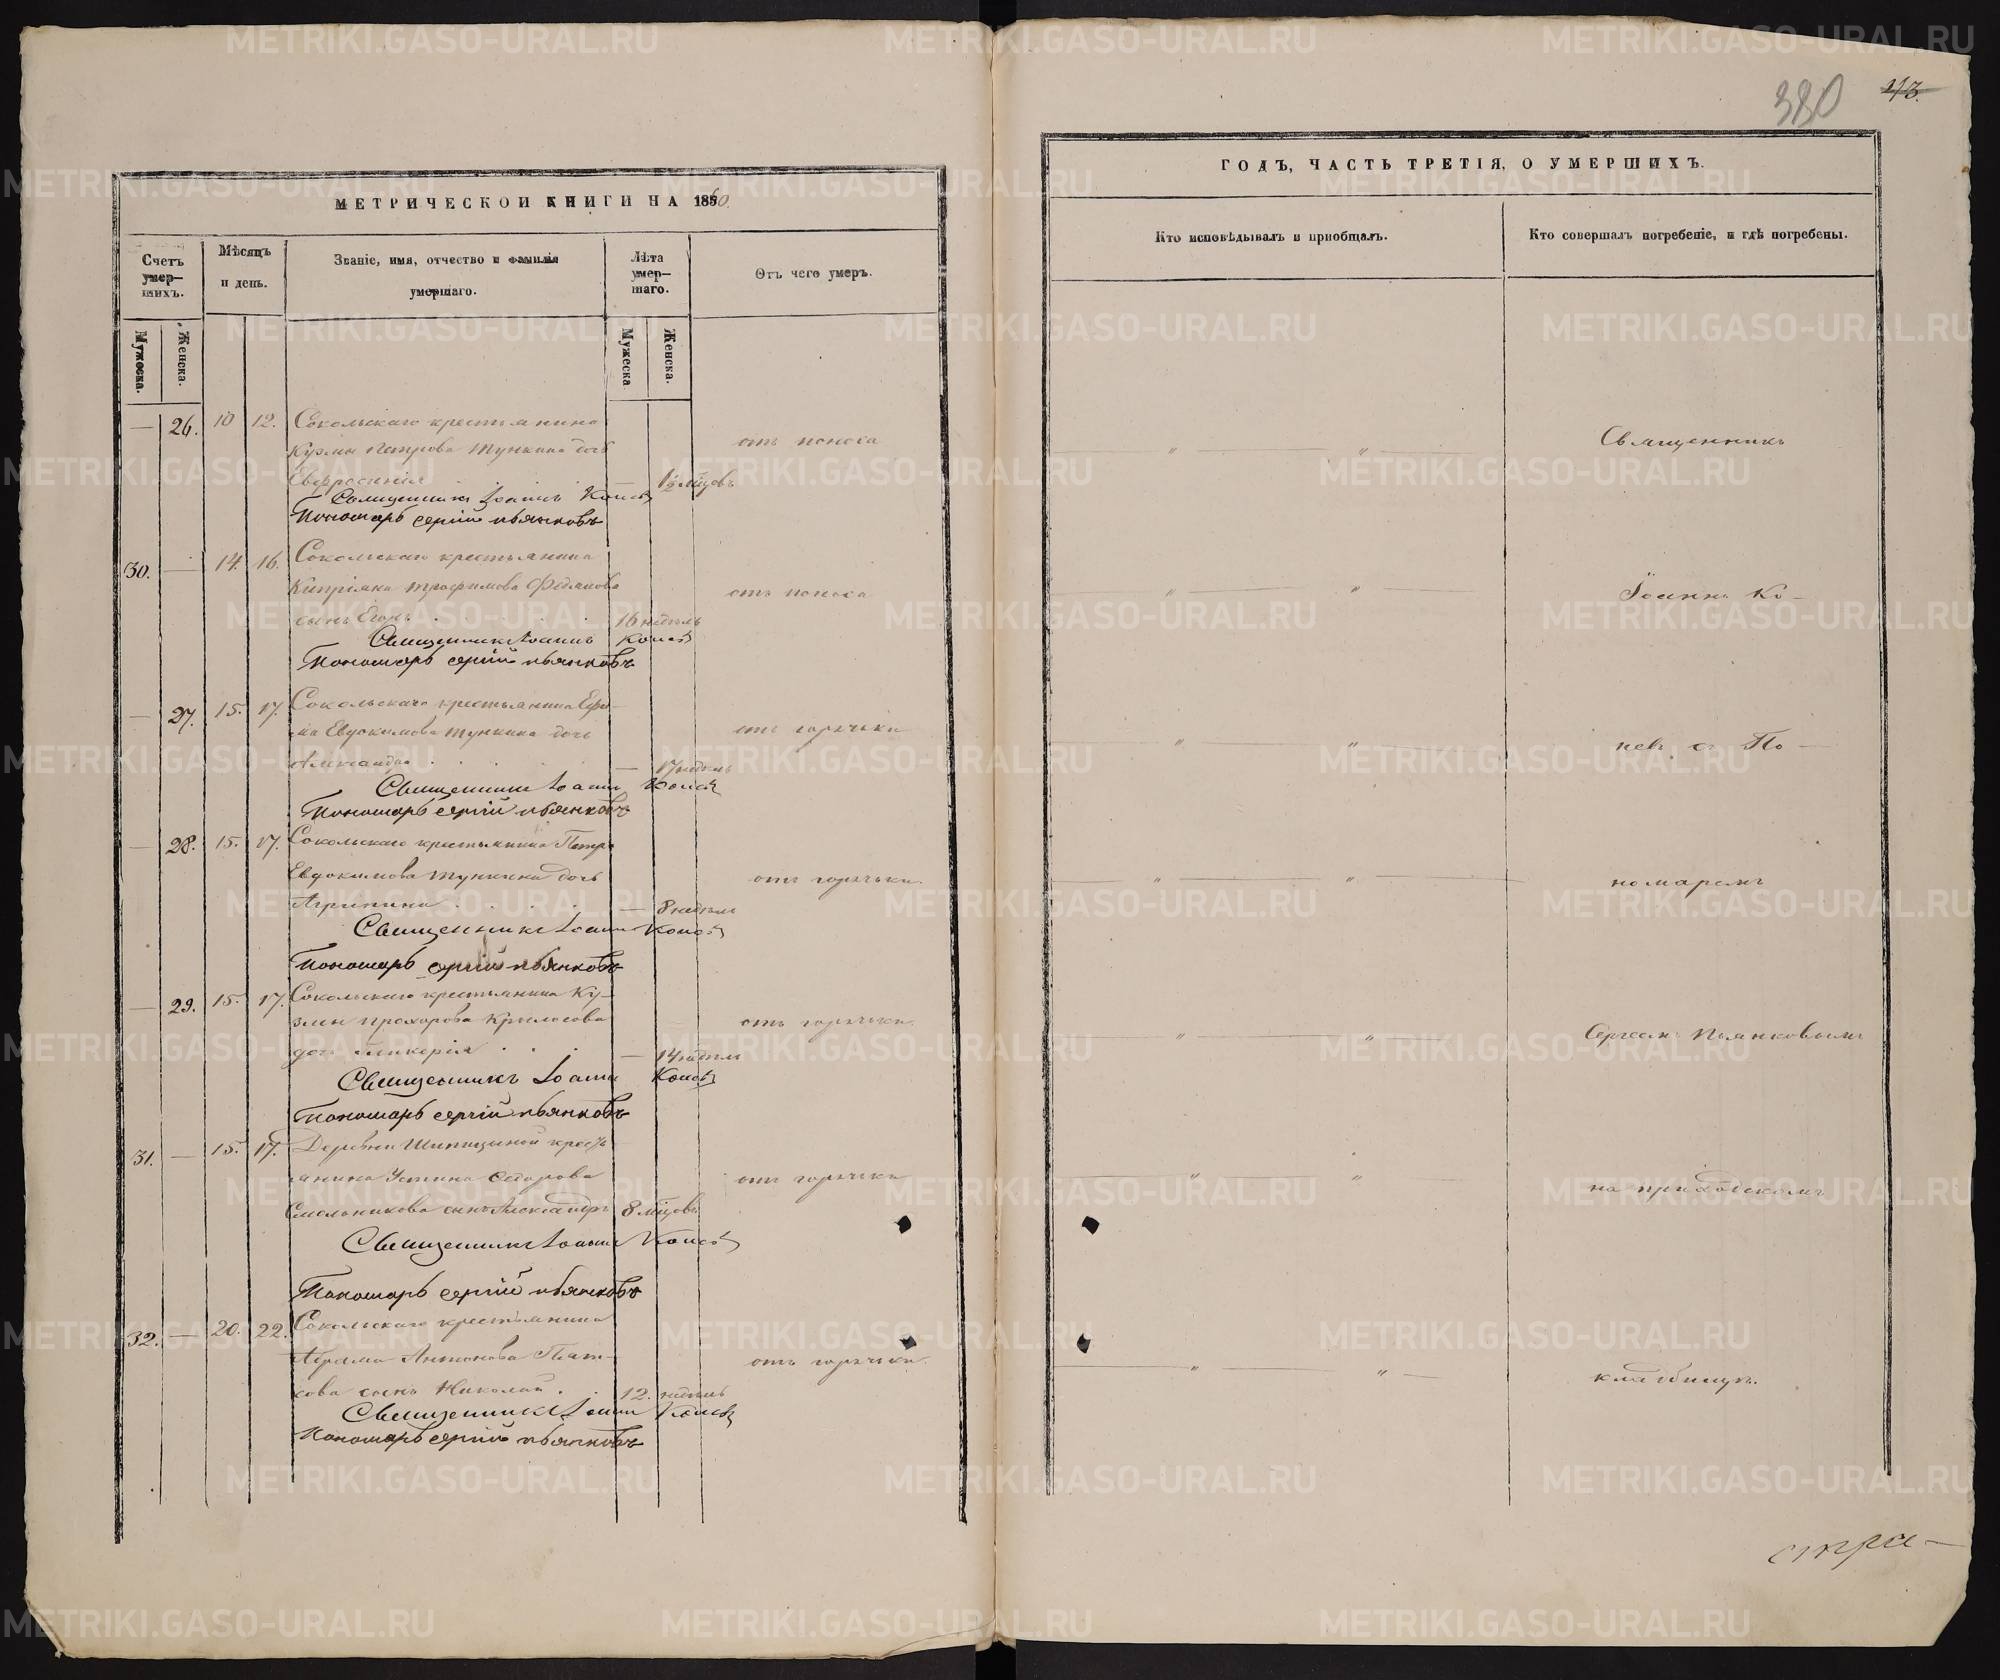 380
43.
МЕТРИЧЕСКОЙ КНИГИ НА 1860.
Счетъ умер-шихъ.
Мужеска.
Женска.
Мѣсяцъ и день.
Званіе, имя, отчество и фамилія умершаго.
Лѣта умер-шаго.
Мужеска
Женска.
Отъ чего умеръ.
— 26. 10 12. Сокольскаго крестьянина
Кузмы Петрова Тункина дочь
отъ поноса
Евфросинія — 1½ мцовъ
Священникъ Іоаннъ
Пономарь Сергій Пьянковъ
30. — 14. 16. Сокольскаго крестьянина
Кипріяна Трофимова Федякова
отъ поноса
сынъ Егоръ 16 недѣль
Священникъ Іоаннъ
Пономарь Сергій Пьянковъ
— 27. 15. 17. Сокольскаго крестьянина Ефи-
ма Евдокимова Тункина дочь
отъ горячьки
Александра — 17 недѣль
Священникъ Іоаннъ
Пономарь Сергій Пьянковъ
— 28. 15. 17. Сокольскаго крестьянина Петра
Евдокимова Тункина дочь
отъ горячьки.
Агрипина — 8 недѣль
Священникъ Іоаннъ
Пономарь Сергій Пьянковъ
— 29. 15. 17. Сокольскаго крестьянина Ку-
змы Прохорова Крылосова
отъ горячьки.
дочь Гликерія — 14 недѣль
Священникъ Іоаннъ
Пономарь Сергій Пьянковъ
31. — 15. 17. Деревни Шипицыной кресть-
янина Устина Федорова
отъ горячьки
Смольникова сынъ Александръ 8 мцовъ
Священникъ Іоаннъ
Пономарь Сергій Пьянковъ
32. — 20. 22. Сокольскаго крестьянина
Абрама Антонова
отъ горячьки.
сынъ Николай 12. недѣль
Священникъ Іоаннъ
Пономарь Сергій Пьянковъ
ГОДЪ, ЧАСТЬ ТРЕТІЯ, О УМЕРШИХЪ.
Кто исповѣдывалъ и пріобщалъ.
Кто совершалъ погребеніе, и гдѣ погребены.
— " — " — Священникъ
— " — " — Іоаннъ Ко-
— " — " — невъ съ По-
— " — " — номаремъ
— " — " — Сергеемъ Пьянковымъ
— " — " — на приходскомъ
— " — " — кладбищѣ.
METRIKI.GASO-URAL.RU